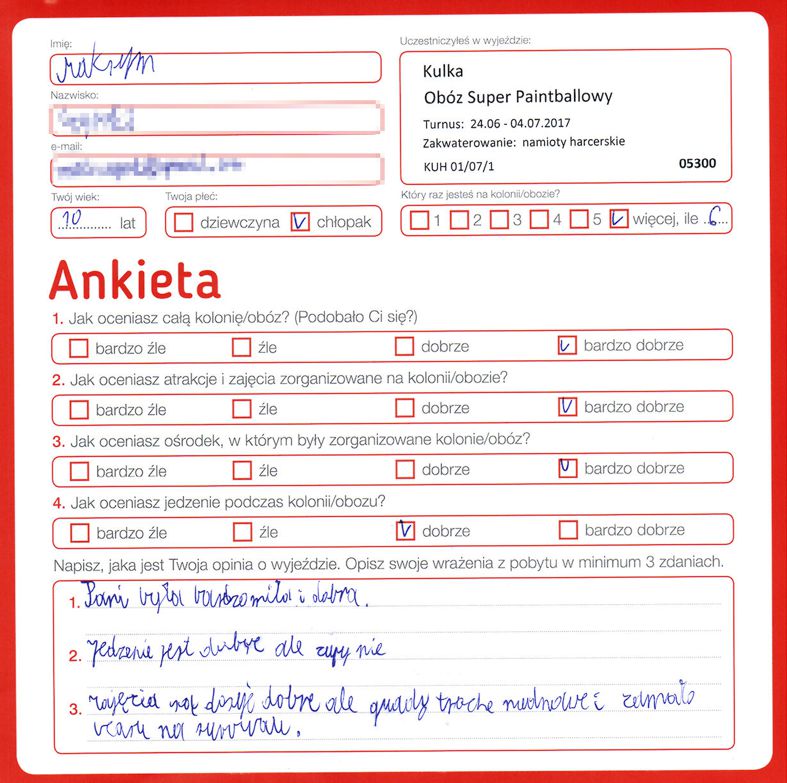 Imię:
Uczestniczyłeś w wyjeździe:
Kulka
Obóz Super Paintballowy
Turnus: 24.06 - 04.07.2017
Zakwaterowanie: namioty harcerskie
KUH 01/07/1 05300
Nazwisko:
e-mail:
Twój wiek: Twoja płeć: Który raz jesteś na kolonii/obozie?
10 lat dziewczyna chłopak 1 2 3 4 5 więcej, ile 6
Ankieta
1. Jak oceniasz całą kolonię/obóz? (Podobało Ci się?)
bardzo źle źle dobrze bardzo dobrze
2. Jak oceniasz atrakcje i zajęcia zorganizowane na kolonii/obozie?
bardzo źle źle dobrze bardzo dobrze
3. Jak oceniasz ośrodek, w którym były zorganizowane kolonie/obóz?
bardzo źle źle dobrze bardzo dobrze
4. Jak oceniasz jedzenie podczas kolonii/obozu?
bardzo źle źle dobrze bardzo dobrze
Napisz, jaka jest Twoja opinia o wyjeździe. Opisz swoje wrażenia z pobytu w minimum 3 zdaniach.
1. Pani była bardzo miła i dobra.
2. jedzenie jest dobre ale zupy nie
3. zajęcia są dobre ale quady troche i zamało
na